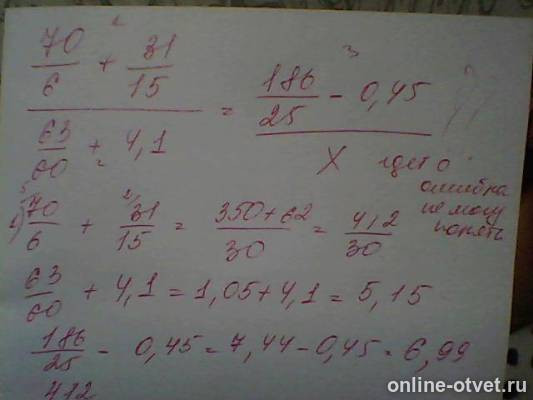 70/6 + 31/15 = 186/25 - 0,45
63/60 + 4,1 X
где то
ошибка
не могу
понять
1) 70/6 + 31/15 = 350+62/30 = 412/30
63/60 + 4,1 = 1,05 + 4,1 = 5,15
186/25 - 0,45 = 7,44 - 0,45 = 6,99
412
online-otvet.ru